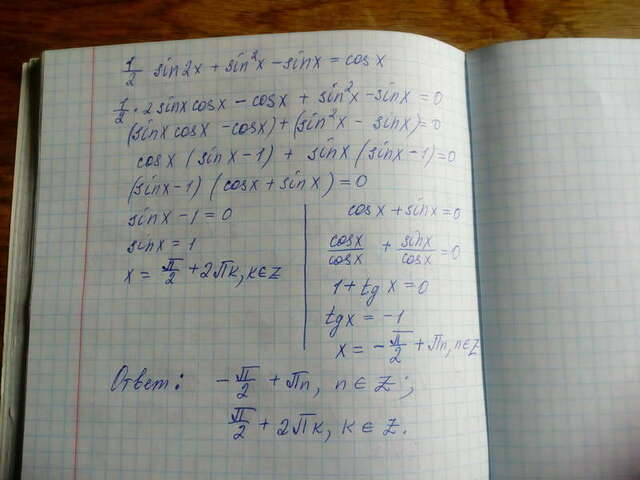 1/2 sin2x + sin²x - sinx = cosx
1/2 · 2sinxcosx - cosx + sin²x - sinx = 0
(sinxcosx - cosx) + (sin²x - sinx) = 0
cosx (sinx - 1) + sinx (sinx - 1) = 0
(sinx - 1) (cosx + sinx) = 0
sinx - 1 = 0
sinx = 1
x = π/2 + 2πk, k∈Z
cosx + sinx = 0
cosx/cosx + sinx/cosx = 0
1 + tg x = 0
tgx = -1
x = -π/2 + πn, n∈Z
Ответ: -π/2 + πn, n∈Z;
π/2 + 2πk, k∈Z.